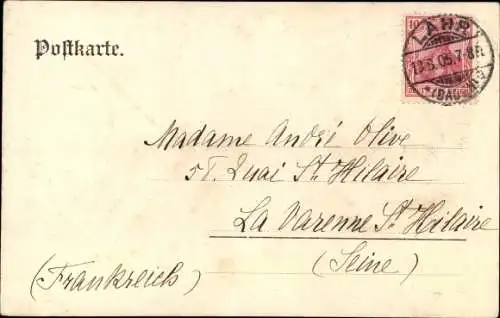 Postkarte.
10
LAHR
13.5.05.7-8N.
*(BADEN)
Madame André Olive
51. Quai St. Hilaire
La Varenne St. Hilaire
(Seine)
(Frankreich)